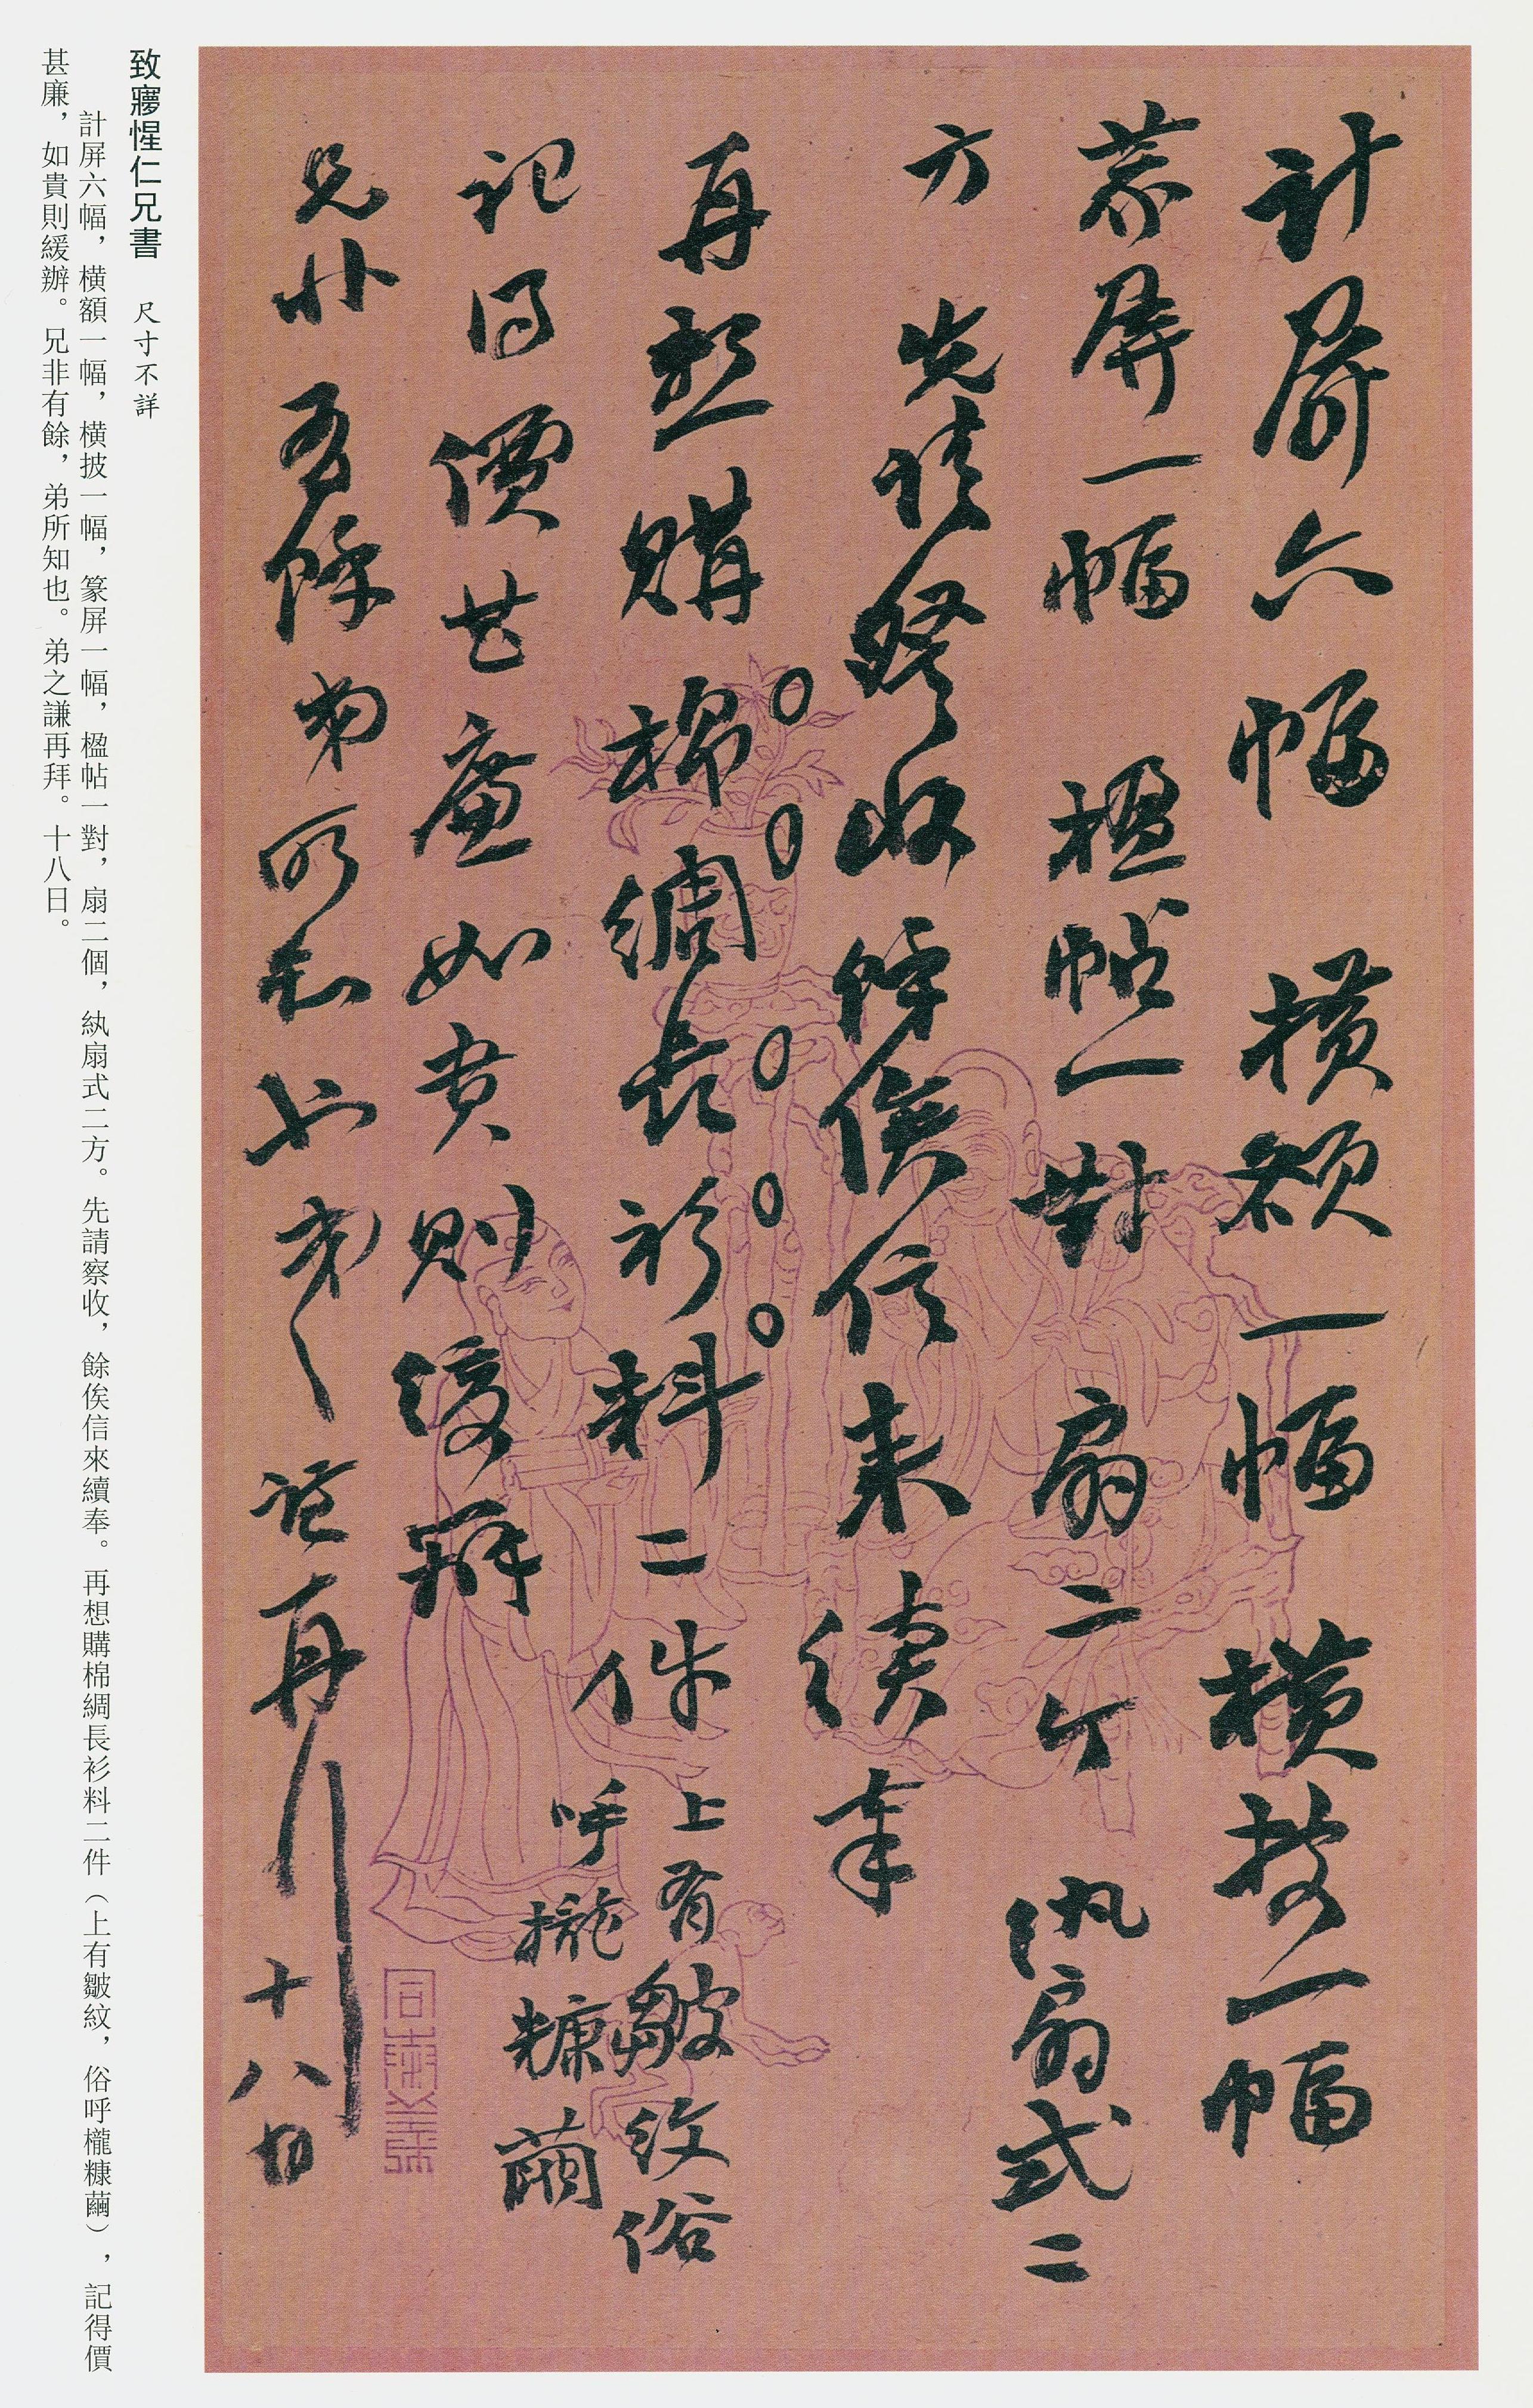 計屏六幅 橫額一幅 橫披一幅
篆屏一幅 楹帖一對 扇二个 紈扇式二
方 先請詧收餘俟信來續奉
再想購棉綢長衫料二件上有皺紋俗
呼攏糠繭
記得價甚廉如貴則緩辦
兄非有餘弟所知也弟之謙再拜十八日
致寱惺仁兄書 尺寸不詳
計屏六幅，橫額一幅，橫披一幅，篆屏一幅，楹帖一對，扇二個，紈扇式二方。先請察收，餘俟信來續奉。再想購棉綢長衫料二件（上有皺紋，俗呼櫳糠繭），記得價
甚廉，如貴則緩辦。兄非有餘，弟所知也。弟之謙再拜。十八日。